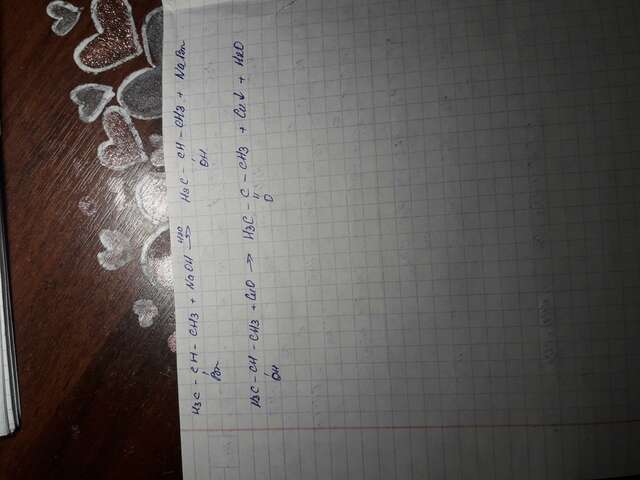 H3C - CH - CH3 + NaOH H2O→ H3C - CH - CH3 + NaBr
Br OH
H3C - CH - CH3 + CuO → H3C - C - CH3 + Cu↓ + H2O
OH O